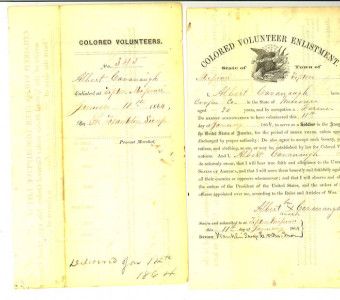 COLORED VOLUNTEERS.
No 393
Albert Cavanaugh
Enlisted at Tipton Missouri
January 11th 1864
By
Present Marched,
Delivered Jan 14th
1864
COLORED VOLUNTEER ENLISTMENT.
State of Town of
Missouri Tipton
I, Albert Cavanaugh
Cooper Co. in the State of
aged 20 years, and by occupation a Farmer
Do HEREBY ACKNOWLEDGE to have volunteered this 11th
day of January 1864, to serve as a Soldier in the
the United States of America, for the period of
discharged by proper authority: Do also agree to accept such bounty,
rations, and clothing, as are, or may be established by law for Colored
And I, Albert Cavanaugh
do solemnly swear, that I will bear true faith and allegiance to the United
States of America, and that I will serve them honestly and faithfully
all their enemies or opposers whomsoever; and that I will observe and
the orders of the President of the United States, and the orders of
officers appointed over me, according to the Rules and Articles of War.
Albert his X Cavanaugh
mark
Sworn and subscribed to, at Tipton Missouri
this 11th day of January 1864
Before Franklin Swap